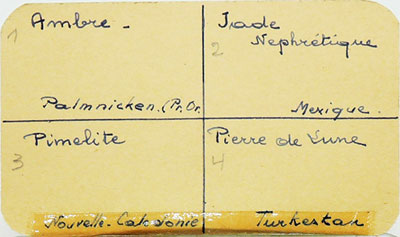 1 Ambre -
Palmnicken. (Pr. Or.
2 Jade
Néphrétique
Mexique.
3 Pimelite
Nouvelle-Calédonie
4 Pierre de Lune
Turkestan